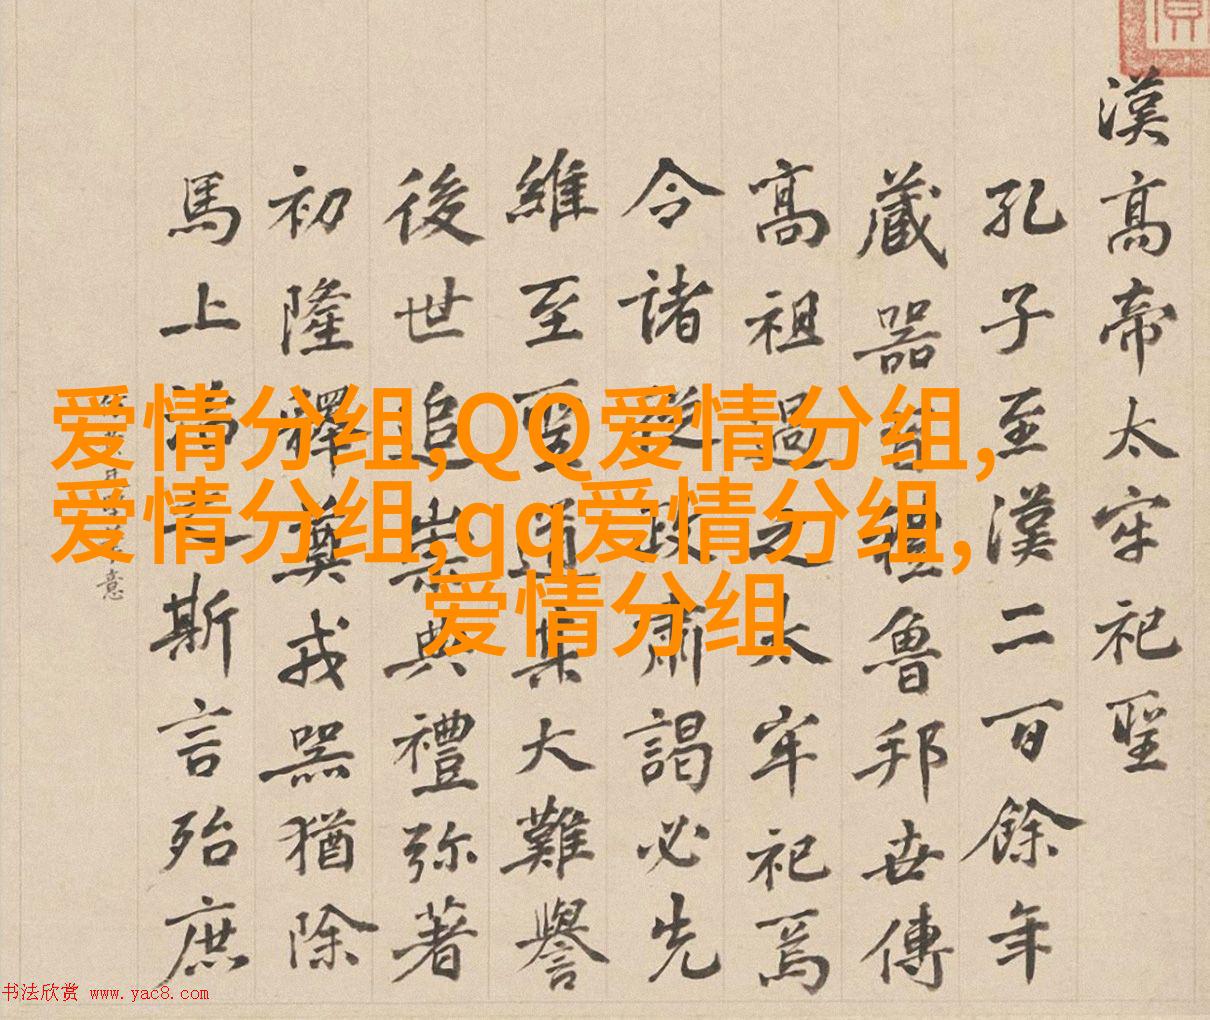 漢高帝太牢祀聖
孔子至漢二百餘年
藏器
魯邦世傳
高祖過之太牢祀焉
令諸
政肅謁必先
維至聖
大難譽
後世追崇典禮弥著
初隆釋奠戎器猶除
馬上
斯言殆庶
意
爱情分组,QQ爱情分组,
爱情分组,qq爱情分组,
爱情分组
书法欣赏 www.yac8.com